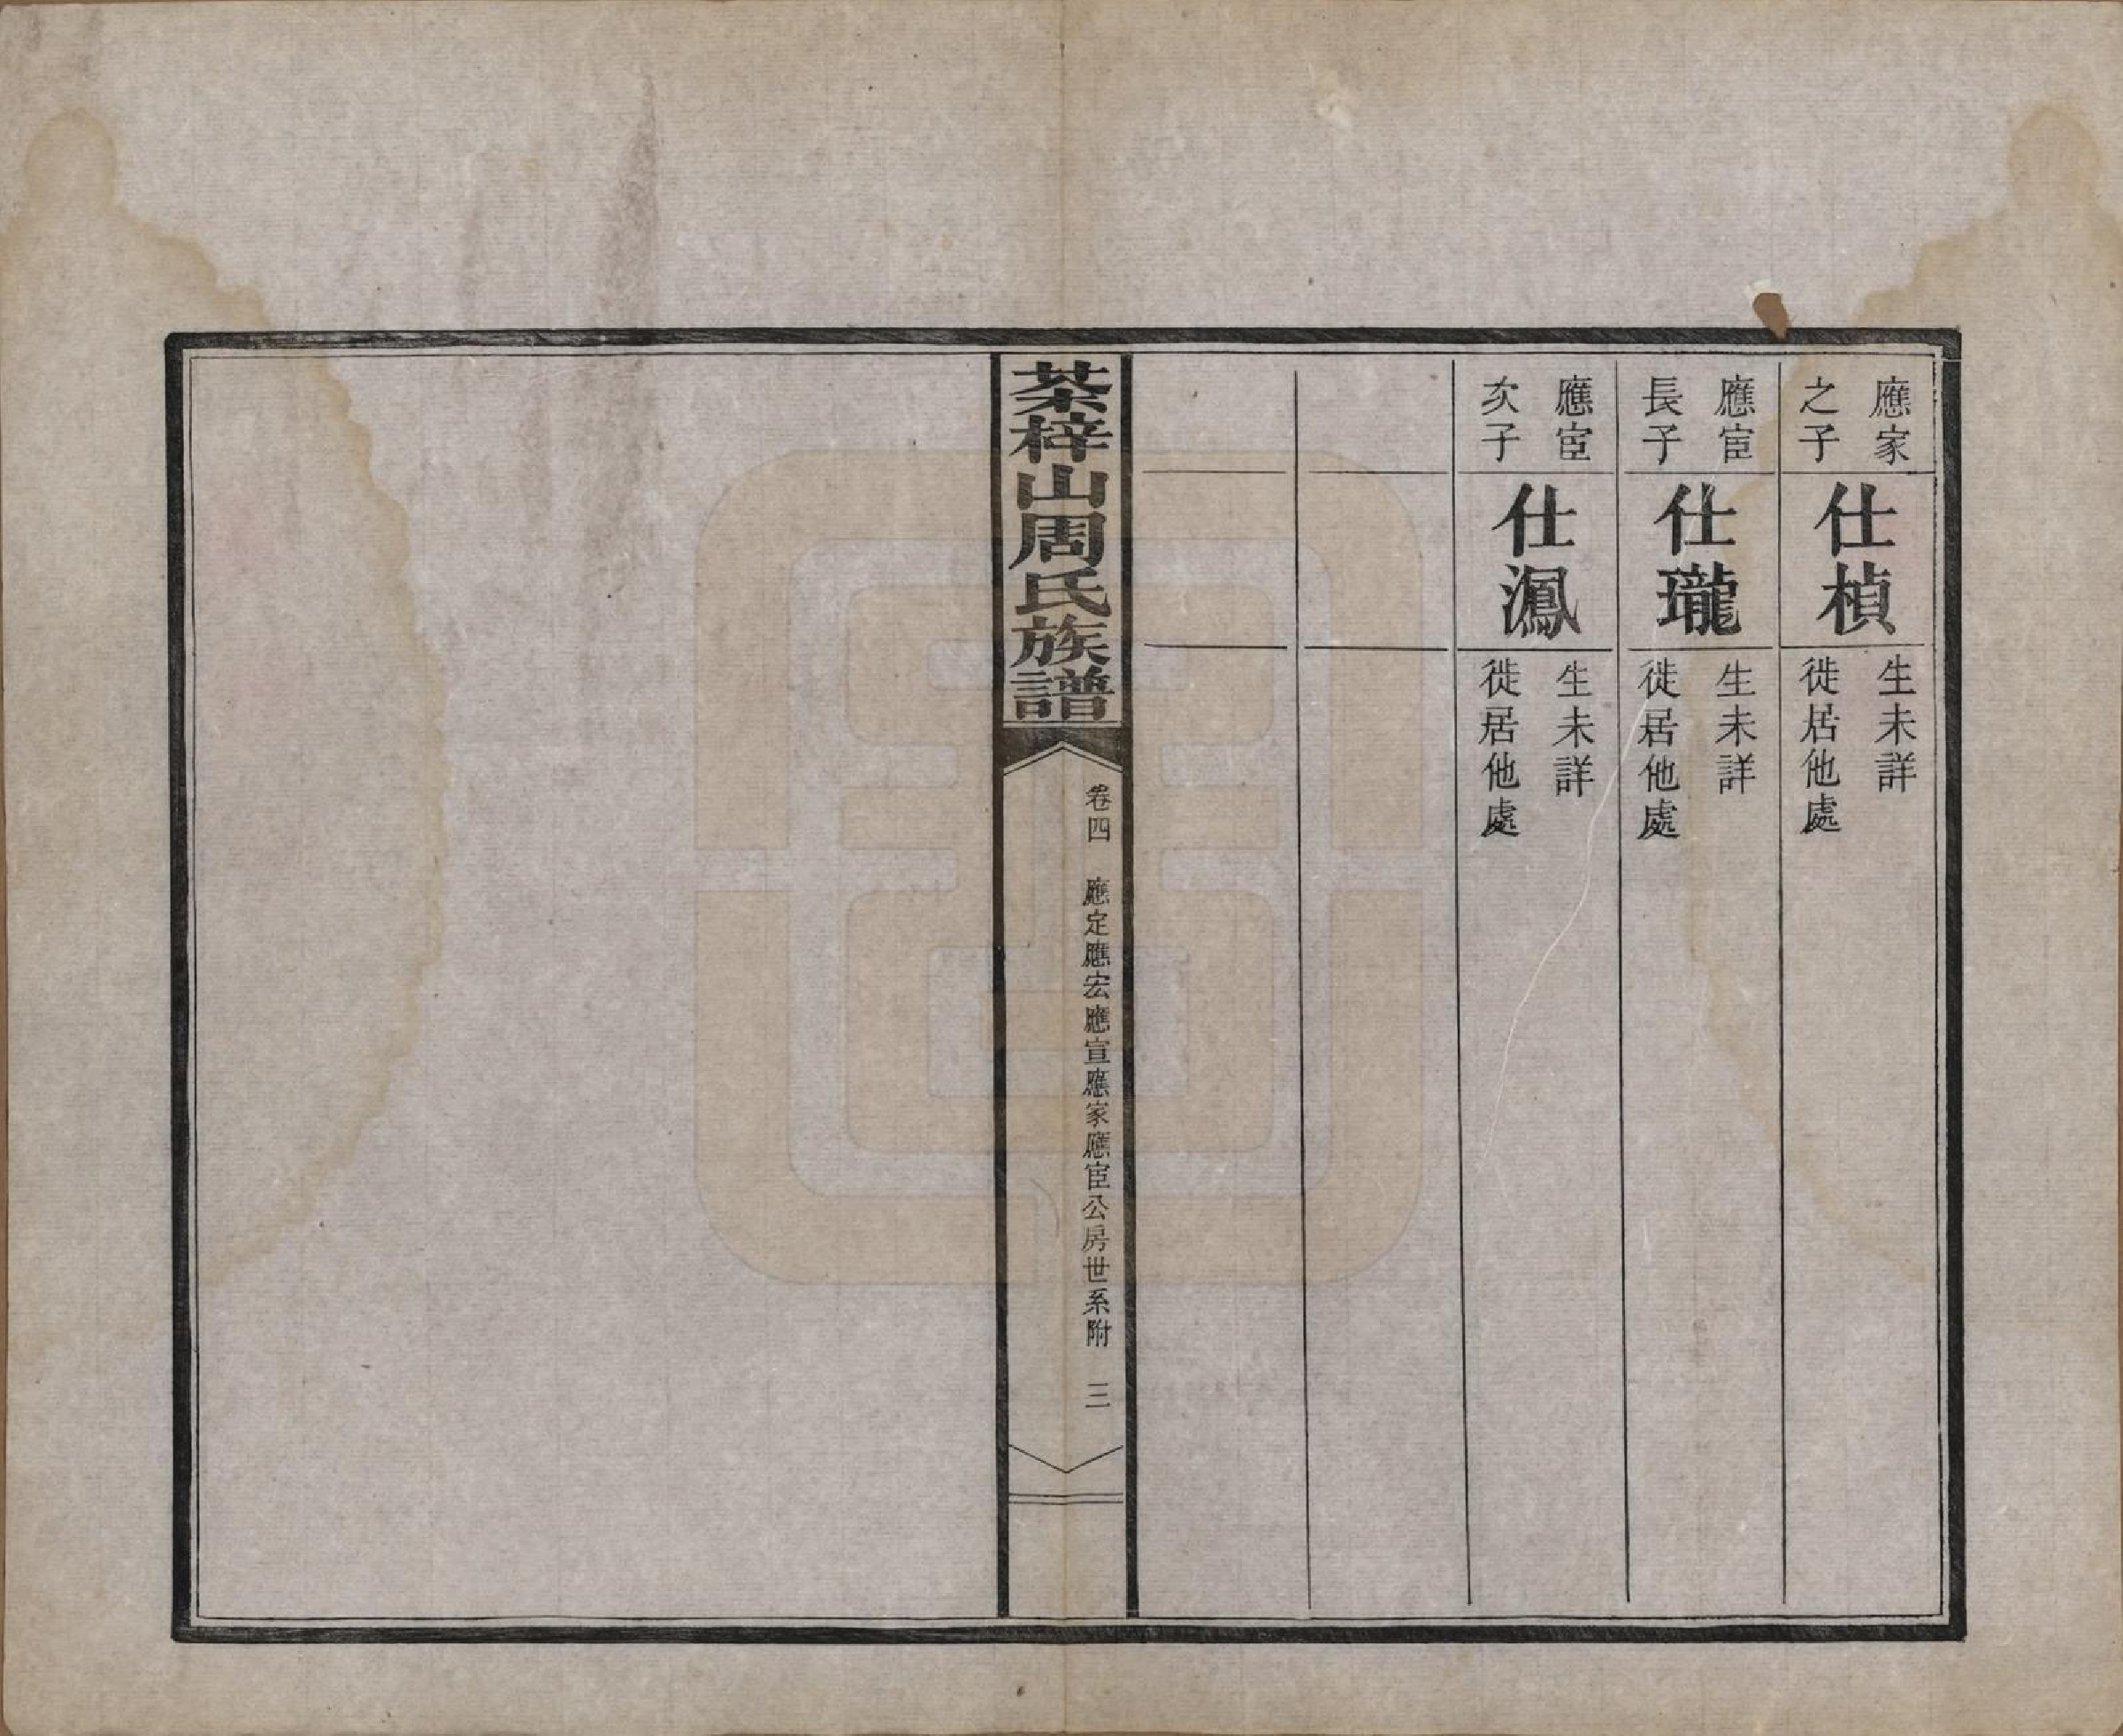 應家
之子
仕楨
生未詳
徙居他處
應宦
長子
仕瓏
生未詳
徙居他處
應宦
次子
仕灍
生未詳
徙居他處
茶梓山周氏族譜
卷四 應定應宏應宣應家應宦公房世系附 三